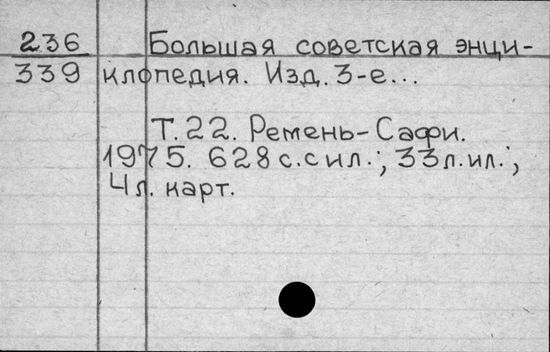 236 Большая советская энци-
339 клопедия. Изд. 3-е...
Т. 22. Ремень-Сафи.
1975. 628 с. с ил.; 33 л. ил.;
4 л. карт.